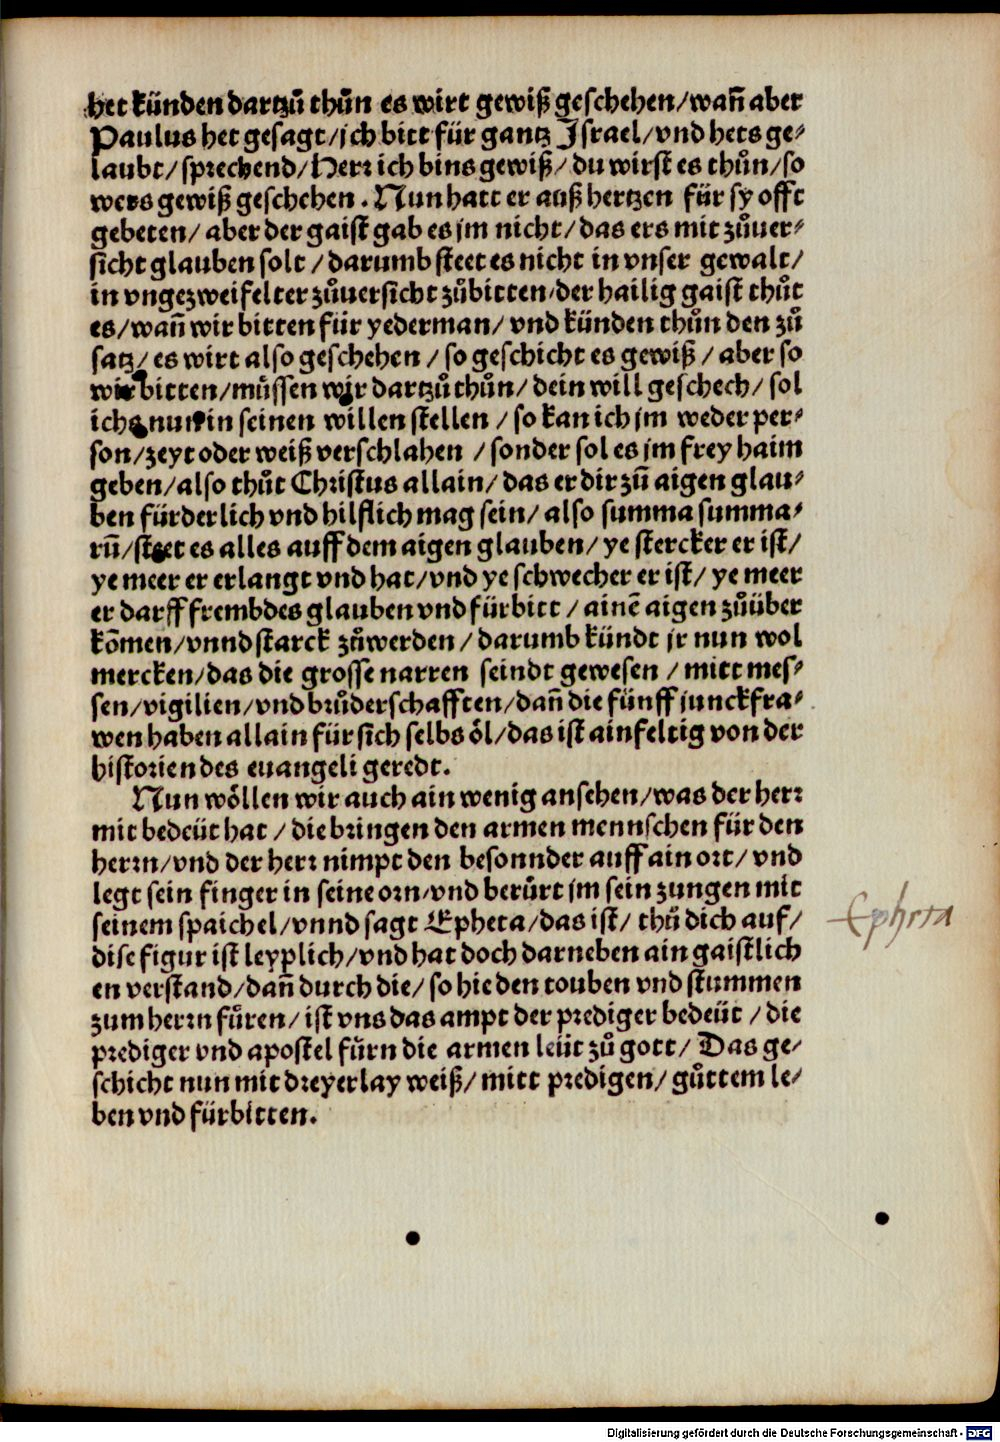 het künden dartzů thůn es wirt gewiß geschehen/wañ aber
Paulus het gesagt/ich bitt für gantz Israel/vnd hets ge⸗
laubt/sprechend/Herr ich bins gewiß/du wirst es thůn/so
wers gewiß geschehen. Nun hatt er auß hertzen für sy offt
gebeten/aber der gaist gab es jm nicht/das ers mit zůuer⸗
sicht glauben solt/darumb steet es nicht in vnser gewalt/
in vngezweifelter zůuersicht zůbitten/der hailig gaist thůt
es/wañ wir bitten für yederman/vnd künden thůn den zů
satz/es wirt also geschehen/so geschicht es gewiß/aber so
wir bitten/müssen wir dartzů thůn/dein will geschech/sol
ichs nun in seinen willen stellen/so kan ich jm weder per⸗
son/zeyt oder weiß verschlahen/sonder sol es jm frey haim
geben/also thůt Christus allain/das er dir zů aigen glau⸗
ben fürderlich vnd hilflich mag sein/also summa summa⸗
rū/steet es alles auff dem aigen glauben/ye stercker er ist/
ye meer er erlangt vnd hat/vnd ye schwecher er ist/ye meer
er darff frembdes glauben vnd fürbitt/ainē aigen zůüber
kōmen/vnnd starck zůwerden/darumb kündt jr nun wol
mercken/das die grosse narren seindt gewesen/mitt mes⸗
sen/vigilien/vnd brůderschafften/dañ die fünff junckfra⸗
wen haben allain für sich selbs öl/das ist ainfeltig von der
historien des euangeli geredt.
Nun wöllen wir auch ain wenig ansehen/was der herr
mit bedeüt hat/die bringen den armen mennschen für den
herrn/vnd der herr nimpt den besonnder auff ain ort/vnd
legt sein finger in seine orn/vnd berůrt jm sein zungen mit
seinem spaichel/vnnd sagt Epheta/das ist/thů dich auf/
dise figur ist leyplich/vnd hat doch darneben ain gaistlich
en verstand/dañ durch die/so hie den touben vnd stummen
zum herrn fůren/ist vns das ampt der prediger bedeüt/die
prediger vnd apostel fůrn die armen leüt zů gott/Das ge⸗
schicht nun mit dreyerlay weiß/mitt predigen/gůttem le⸗
ben vnd fürbitten.
Epheta
Digitalisierung gefördert durch die Deutsche Forschungsgemeinschaft - DFG